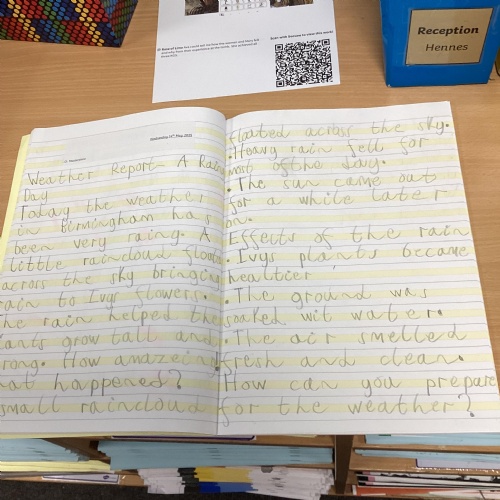 Reception
Hennes
Weather Report- A Rainy
Day
Today the weather
in Birmingham has
been very raing. A
little raincloud floate
across the sky bringin
rain to Ivys flowers.
he rain helped the
lants grow tall and
rong. How amazeing!
hat happened?
small raincloud
floated across the sky.
• Heavy rain fell for
most of the day.
• The sun came out
for a while later
on.
Effects of the rain
• Ivys plants became
healtier
• The ground was
soaked wit water.
• The air smelled
fresh and clean.
How can you prepare
for the weather?